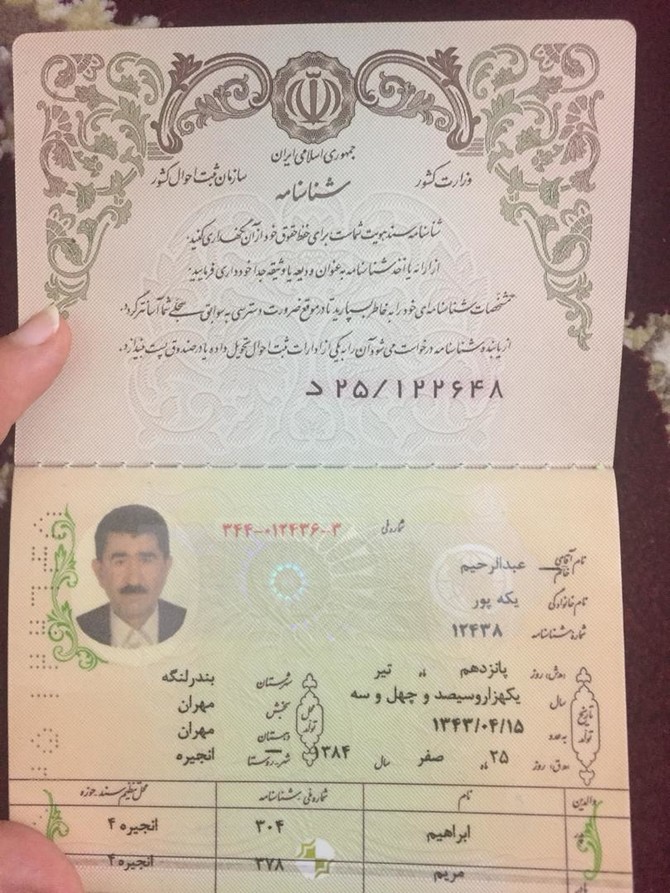 جمهوری اسلامی ایران
وزارت کشور
سازمان ثبت احوال کشور
شناسنامه
شناسنامه سند هویت شماست برای حفظ حقوق خود از آن نگهداری کنید.
از ارائه یا اخذ شناسنامه به عنوان ودیعه یا وثیقه جدا خودداری فرمایید.
مشخصات شناسنامه‌ای خود را به خاطر بسپارید تا در موقع ضرورت دسترسی به سوابق سجلی شما آسانتر گردد.
از یابنده شناسنامه درخواست می‌شود آن را به یکی از ادارات ثبت احوال تحویل داده یا در صندوق پست بیندازد.
د ۲۵/۱۲۲۶۴۸
شماره ملی ۳۴۴-۰۱۲۴۳۶-۳
نام آقای خانم عبدالرحیم
نام خانوادگی یکه پور
شماره شناسنامه ۱۲۴۳۸
تاریخ تولد
ه‍.ش. روز پانزدهم ماه تیر
سال یکهزاروسیصد و چهل و سه
به عدد ۱۳۴۳/۰۴/۱۵
ه‍.ق. روز ۲۵ ماه صفر سال ۱۳۸۴
محل تولد
شهرستان بندرلنگه
بخش مهران
دهستان مهران
شهر-روستا انجیره
والدین نام شماره ملی-شناسنامه محل تنظیم سند-حوزه
پدر ابراهیم ۳۰۴ انجیره ۴
مادر مریم ۳۷۸ انجیره ۴